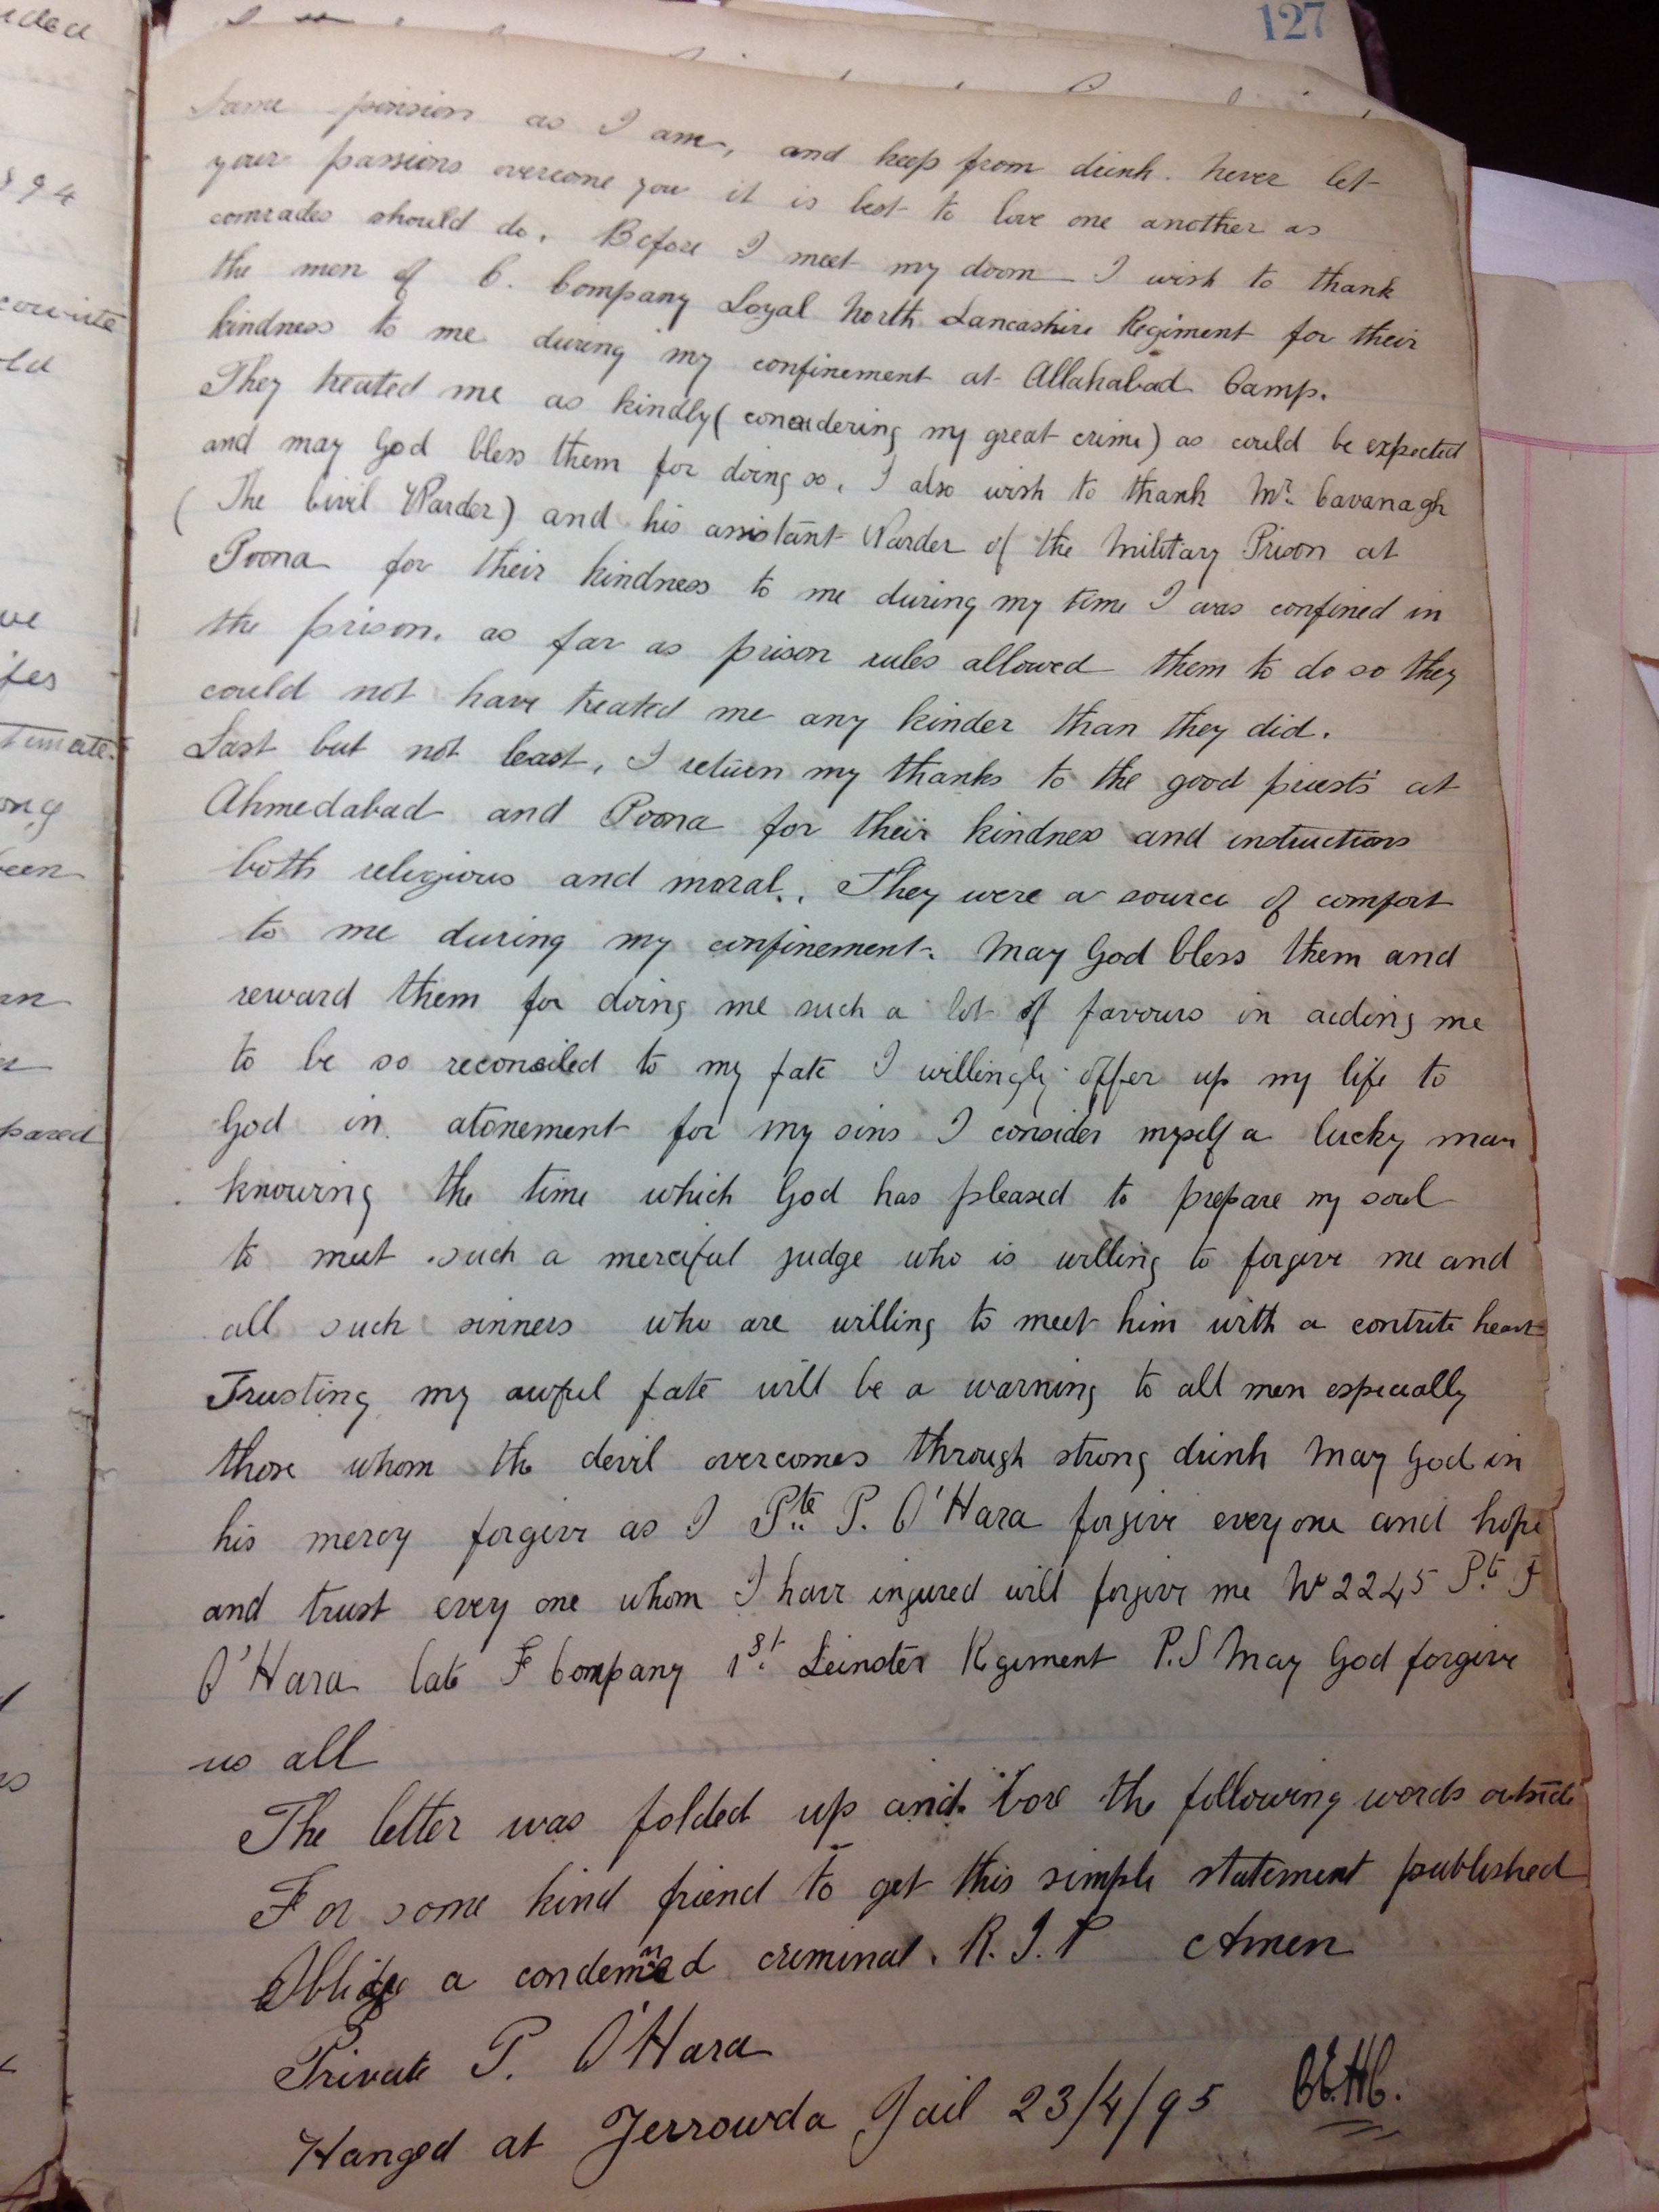 127
same posision as I am, and keep from drink. never let
your passions overcome you it is best to love one another as
comrades should do. Before I meet my doom I wish to thank
the men of C. Company Loyal North Lancashire Regiment for their
kindness to me during my confinement at Allahabad Camp.
They treated me as kindly (considering my great crime) as could be expected
and may God bless them for doing so. I also wish to thank Mr. Cavanagh
(The Civil Warder) and his assistant Warder of the Military Prison at
Poona for their kindness to me during my time I was confined in
the prison. as far as prison rules allowed them to do so they
could not have treated me any kinder than they did.
Last but not least, I return my thanks to the good priests at
Ahmedabad and Poona for their kindness and instructions
both religious and moral. They were a source of comfort
to me during my confinement. May God bless them and
reward them for doing me such a lot of favours in aiding me
to be so reconsiled to my fate I willingly offer up my life to
God in atonement for my sins I consider myself a lucky man
knowing the time which God has pleased to prepare my soul
to meet such a merciful judge who is willing to forgive me and
all such sinners who are willing to meet him with a contrite heart
Trusting my awful fate will be a warning to all men especially
those whom the devil overcomes through strong drink May God in
his mercy forgive as I Pte P. O'Hara forgive every one and hope
and trust every one whom I have injured will forgive me No 2245 Pt
O'Hara late F Company 1st Leinster Regiment P.S May God forgive
us all
The letter was folded up and bore the following words outside
For some kind friend to get this simple statement published
Oblige a condemned criminal. R.I.P Amen
Private P. O'Hara
Hanged at Yerrowda Jail 23/4/95